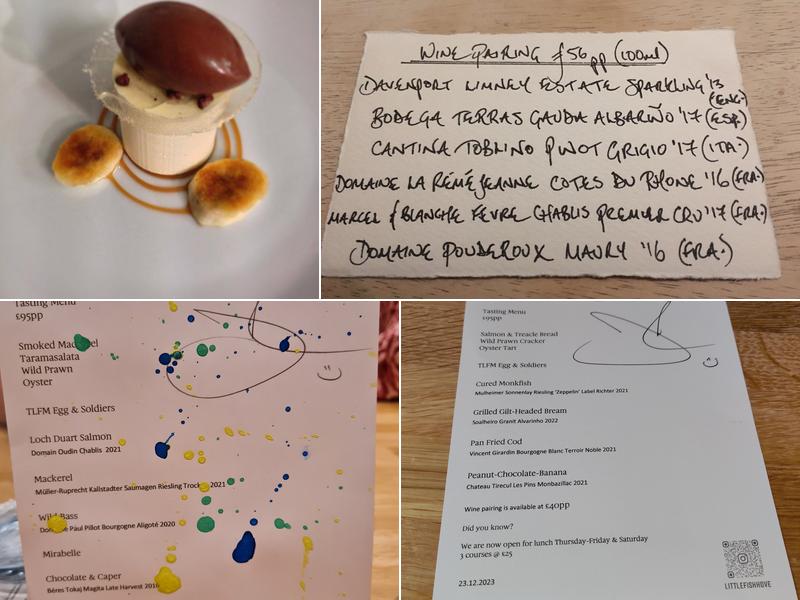 WINE PAIRING £56pp (100ml)
DAVENPORT LIMNEY ESTATE SPARKLING '13 (ENG.)
BODEGA TERRAS GAUDA ALBARIÑO '17 (ESP.)
CANTINA TOBLINO PINOT GRIGIO '17 (ITA.)
DOMAINE LA RÉMÉJEANNE COTES DU RHONE '16 (FRA.)
MARCEL & BLANCHE FEVRE CHABLIS PREMIER CRU '17 (FRA.)
DOMAINE POUDEROUX MAURY '16 (FRA.)
Tasting Menu
£95pp
Smoked Mackerel
Taramasalata
Wild Prawn
Oyster
TLFM Egg & Soldiers
Loch Duart Salmon
Domain Oudin Chablis 2021
Mackerel
Müller-Ruprecht Kallstadter Saumagen Riesling Trocken 2021
Wild Bass
Domaine Paul Pillot Bourgogne Aligoté 2020
Mirabelle
Chocolate & Caper
Béres Tokaj Magita Late Harvest 2016
Tasting Menu
£95pp
Salmon & Treacle Bread
Wild Prawn Cracker
Oyster Tart
TLFM Egg & Soldiers
Cured Monkfish
Mulheimer Sonnenlay Riesling 'Zeppelin' Label Richter 2021
Grilled Gilt-Headed Bream
Soalheiro Granit Alvarinho 2022
Pan Fried Cod
Vincent Girardin Bourgogne Blanc Terroir Noble 2021
Peanut-Chocolate-Banana
Chateau Tirecul Les Pins Monbazillac 2021
Wine pairing is available at £40pp
Did you know?
We are now open for lunch Thursday-Friday & Saturday
3 courses @ £25
23.12.2023
LITTLEFISHHOVE